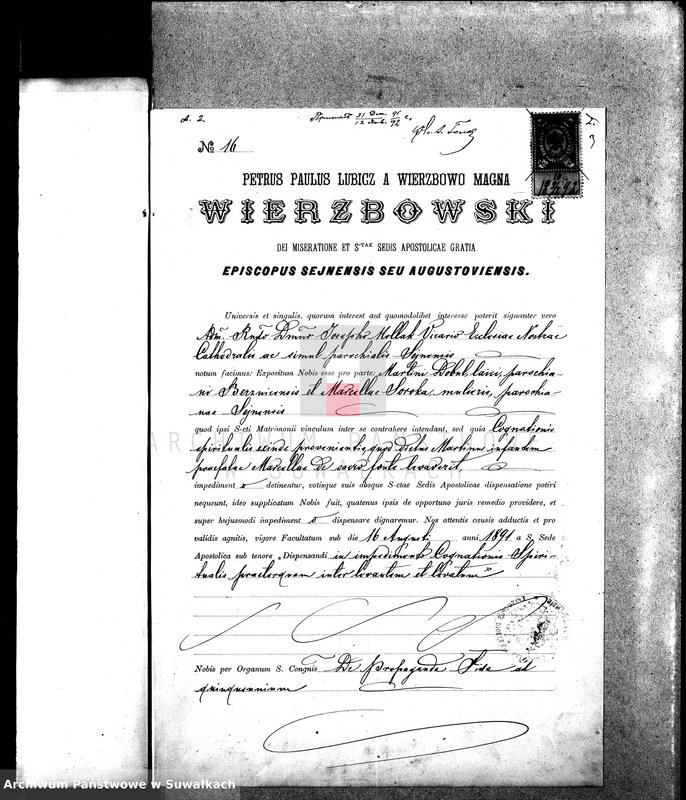 A. 2.
31 Dec. 91
12 92
№ 16
PETRUS PAULUS LUBICZ A WIERZBOWO MAGNA
WIERZBOWSKI
DEI MISERATIONE ET S-TAE SEDIS APOSTOLICAE GRATIA
EPISCOPUS SEJNENSIS SEU AUGUSTOVIENSIS.
Universis et singulis, quorum interest aut quomodolibet interesse poterit signanter vero
Adm. Rndo Dmno Josepho Mollak Vicario Eclesiae Nostrae
Cathedralis ac simul parochialis Sejnensis
notum facimus: Expositum Nobis esse pro parte: Martini Dobul, laici, parochia-
ni Berznicensis et Marcellae Soroka, mulieris, parochia-
nae Sejnensis
quod ipsi S-cti Matrimonii vinculum inter se contrahere intendant, sed quia Cognationis
spiritualis exinde provenientis, quod dictus Martinus infantem
praefatae Marcellae de sacro fonte levaverit,
impediment o detinentur, votisque suis absque S-ctae Sedis Apostolicae dispensatione potiri
nequeunt, ideo supplicatum Nobis fuit, quatenus ipsis de opportuno juris remedio providere, et
super hujusmodi impediment o dispensare dignaremur. Nos attentis causis adductis et pro
validis agnitis, vigore Facultatum sub die 16 Augusti anni 1891 a S. Sede
Apostolica sub tenore „Dispensandi in impedimento Cognationis Spiri-
tualis praeterquam inter levantem et levatum"
Nobis per Organum S. Congnis De Propaganda Fide ad
quinquennium
ARCHIWUM PAŃSTWOWE
W SUWAŁKACH
Archiwum Państwowe w Suwałkach